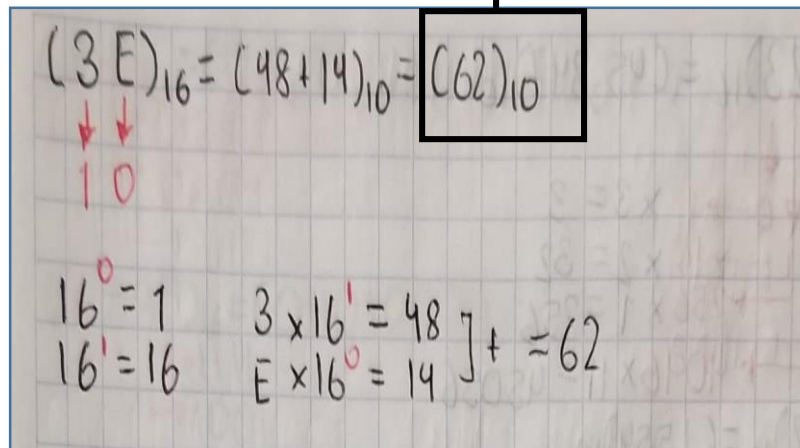 (3E)₁₆ = (48+14)₁₀ = (62)₁₀
1 0
16⁰ = 1 3 × 16¹ = 48
16¹ = 16 E × 16⁰ = 14 ] + = 62